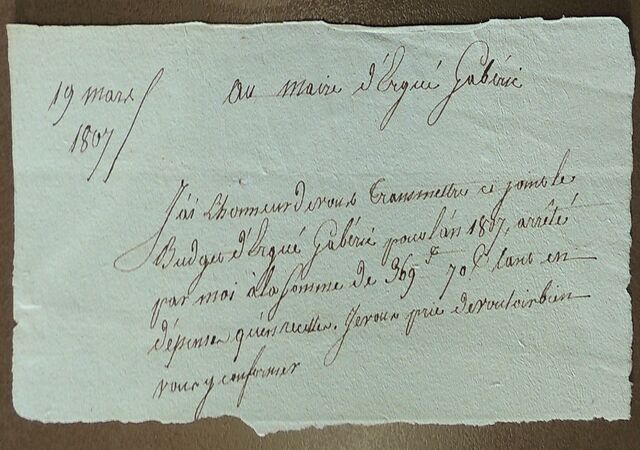 19 mars
1807
au maire d'Ergué Gabéric
J'ai L'honneur de vous transmettre ci joint le
Budget d'Ergué Gabéric pour l'an 1807, arrêté
par moi à la somme de 369 f 70 c tant en
dépenses qu'en recettes. Je vous prie de vouloir bien
vous y conformer